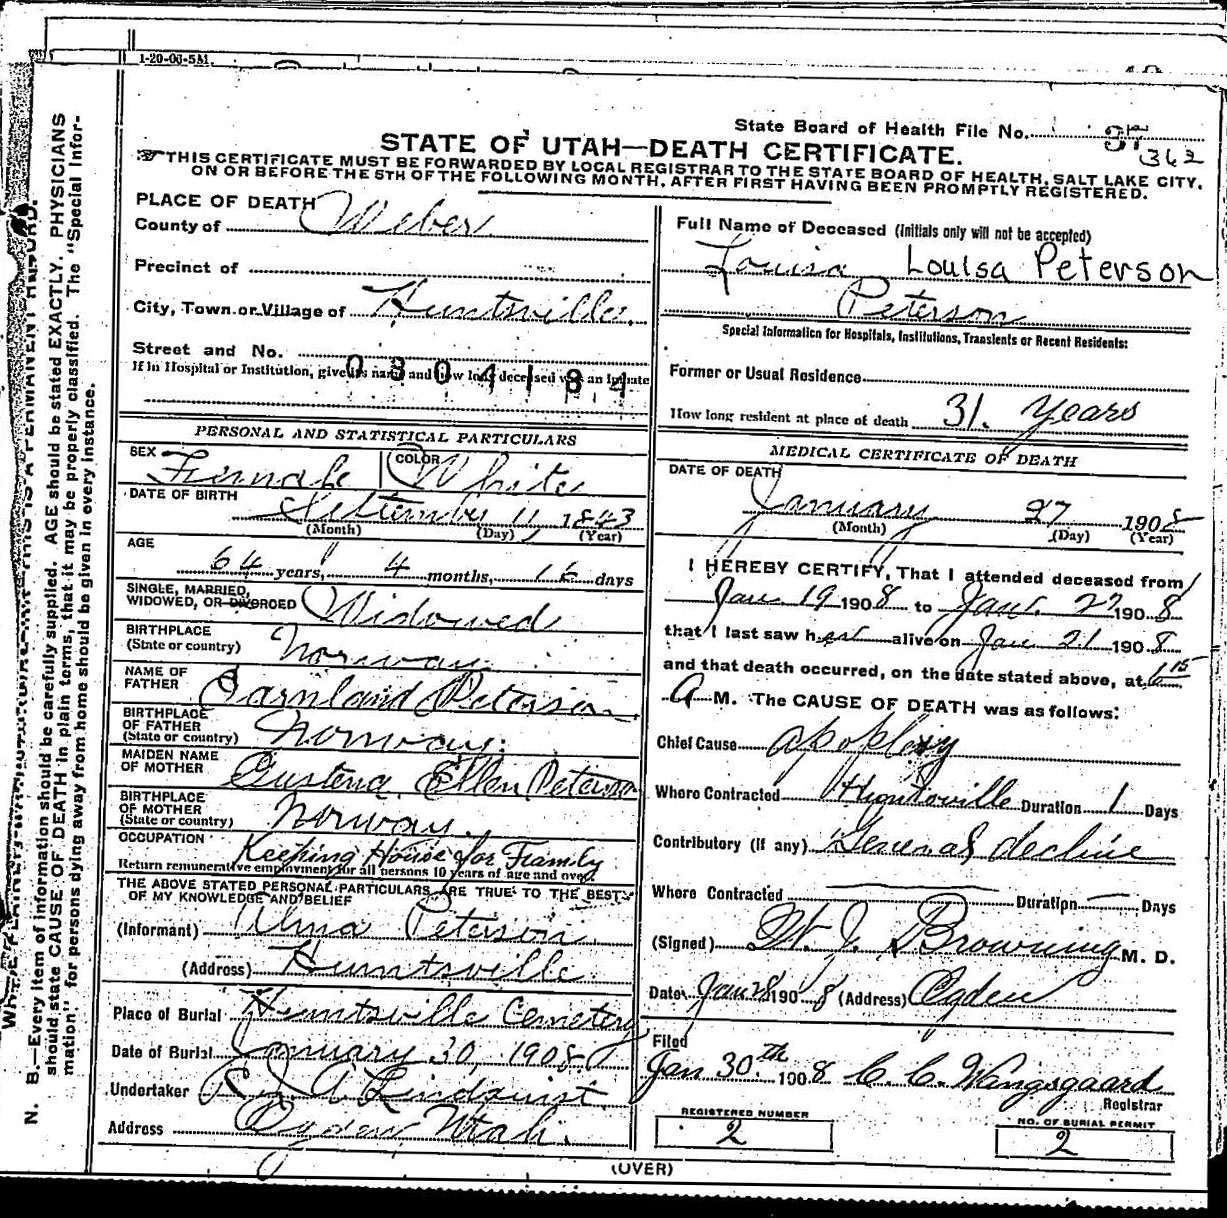 1-20-06-5M.
State Board of Health File No. 362
STATE OF UTAH—DEATH CERTIFICATE.
THIS CERTIFICATE MUST BE FORWARDED BY LOCAL REGISTRAR TO THE STATE BOARD OF HEALTH, SALT LAKE CITY,
ON OR BEFORE THE 5TH OF THE FOLLOWING MONTH, AFTER FIRST HAVING BEEN PROMPTLY REGISTERED.
PLACE OF DEATH
County of Weber
Precinct of
City, Town or Village of Huntsville.
Street and No.
If in Hospital or Institution, give its name and how long deceased was an Inmate
0304184
Full Name of Deceased (Initials only will not be accepted)
Louisa Louisa Peterson
Peterson
Special Information for Hospitals, Institutions, Transients or Recent Residents:
Former or Usual Residence
How long resident at place of death 31. Years
PERSONAL AND STATISTICAL PARTICULARS
SEX Female COLOR White
DATE OF BIRTH September 11, 1843
(Month) (Day) (Year)
AGE
64 years, 4 months, 16 days
SINGLE, MARRIED,
WIDOWED, OR DIVORCED Widowed
BIRTHPLACE
(State or country) Norway
NAME OF
FATHER Peterson
BIRTHPLACE
OF FATHER
(State or country) Norway.
MAIDEN NAME
OF MOTHER Ellen Peterson
BIRTHPLACE
OF MOTHER
(State or country) Norway.
OCCUPATION Keeping House for Family
Return remunerative employment for all persons 10 years of age and over.
THE ABOVE STATED PERSONAL PARTICULARS ARE TRUE TO THE BEST
OF MY KNOWLEDGE AND BELIEF
(Informant) Alma Peterson
(Address) Huntsville
Place of Burial Huntsville Cemetery
Date of Burial January 30, 1908
Undertaker Lindquist
Address Ogden Utah.
MEDICAL CERTIFICATE OF DEATH
DATE OF DEATH
January 27 1908
(Month) (Day) (Year)
I HEREBY CERTIFY, That I attended deceased from
Jan 19 1908 to Jan. 27 1908
that I last saw her alive on Jan 21 1908
and that death occurred, on the date stated above, at 6 15
A M. The CAUSE OF DEATH was as follows:
Chief Cause apoplexy
Where Contracted Huntsville Duration 1 Days
Contributory (if any) General decline
Where Contracted Duration Days
(Signed) W. J. Browning M. D.
Date Jan 28 1908 (Address) Ogden
Filed
Jan 30th 1908 C. C. Wangsgaard
Registrar
REGISTERED NUMBER
2
NO. OF BURIAL PERMIT
2
(OVER)
N. B.—Every item of information should be carefully supplied. AGE should be stated EXACTLY. PHYSICIANS
should state CAUSE OF DEATH in plain terms, that it may be properly classified. The "Special Infor-
mation" for persons dying away from home should be given in every instance.